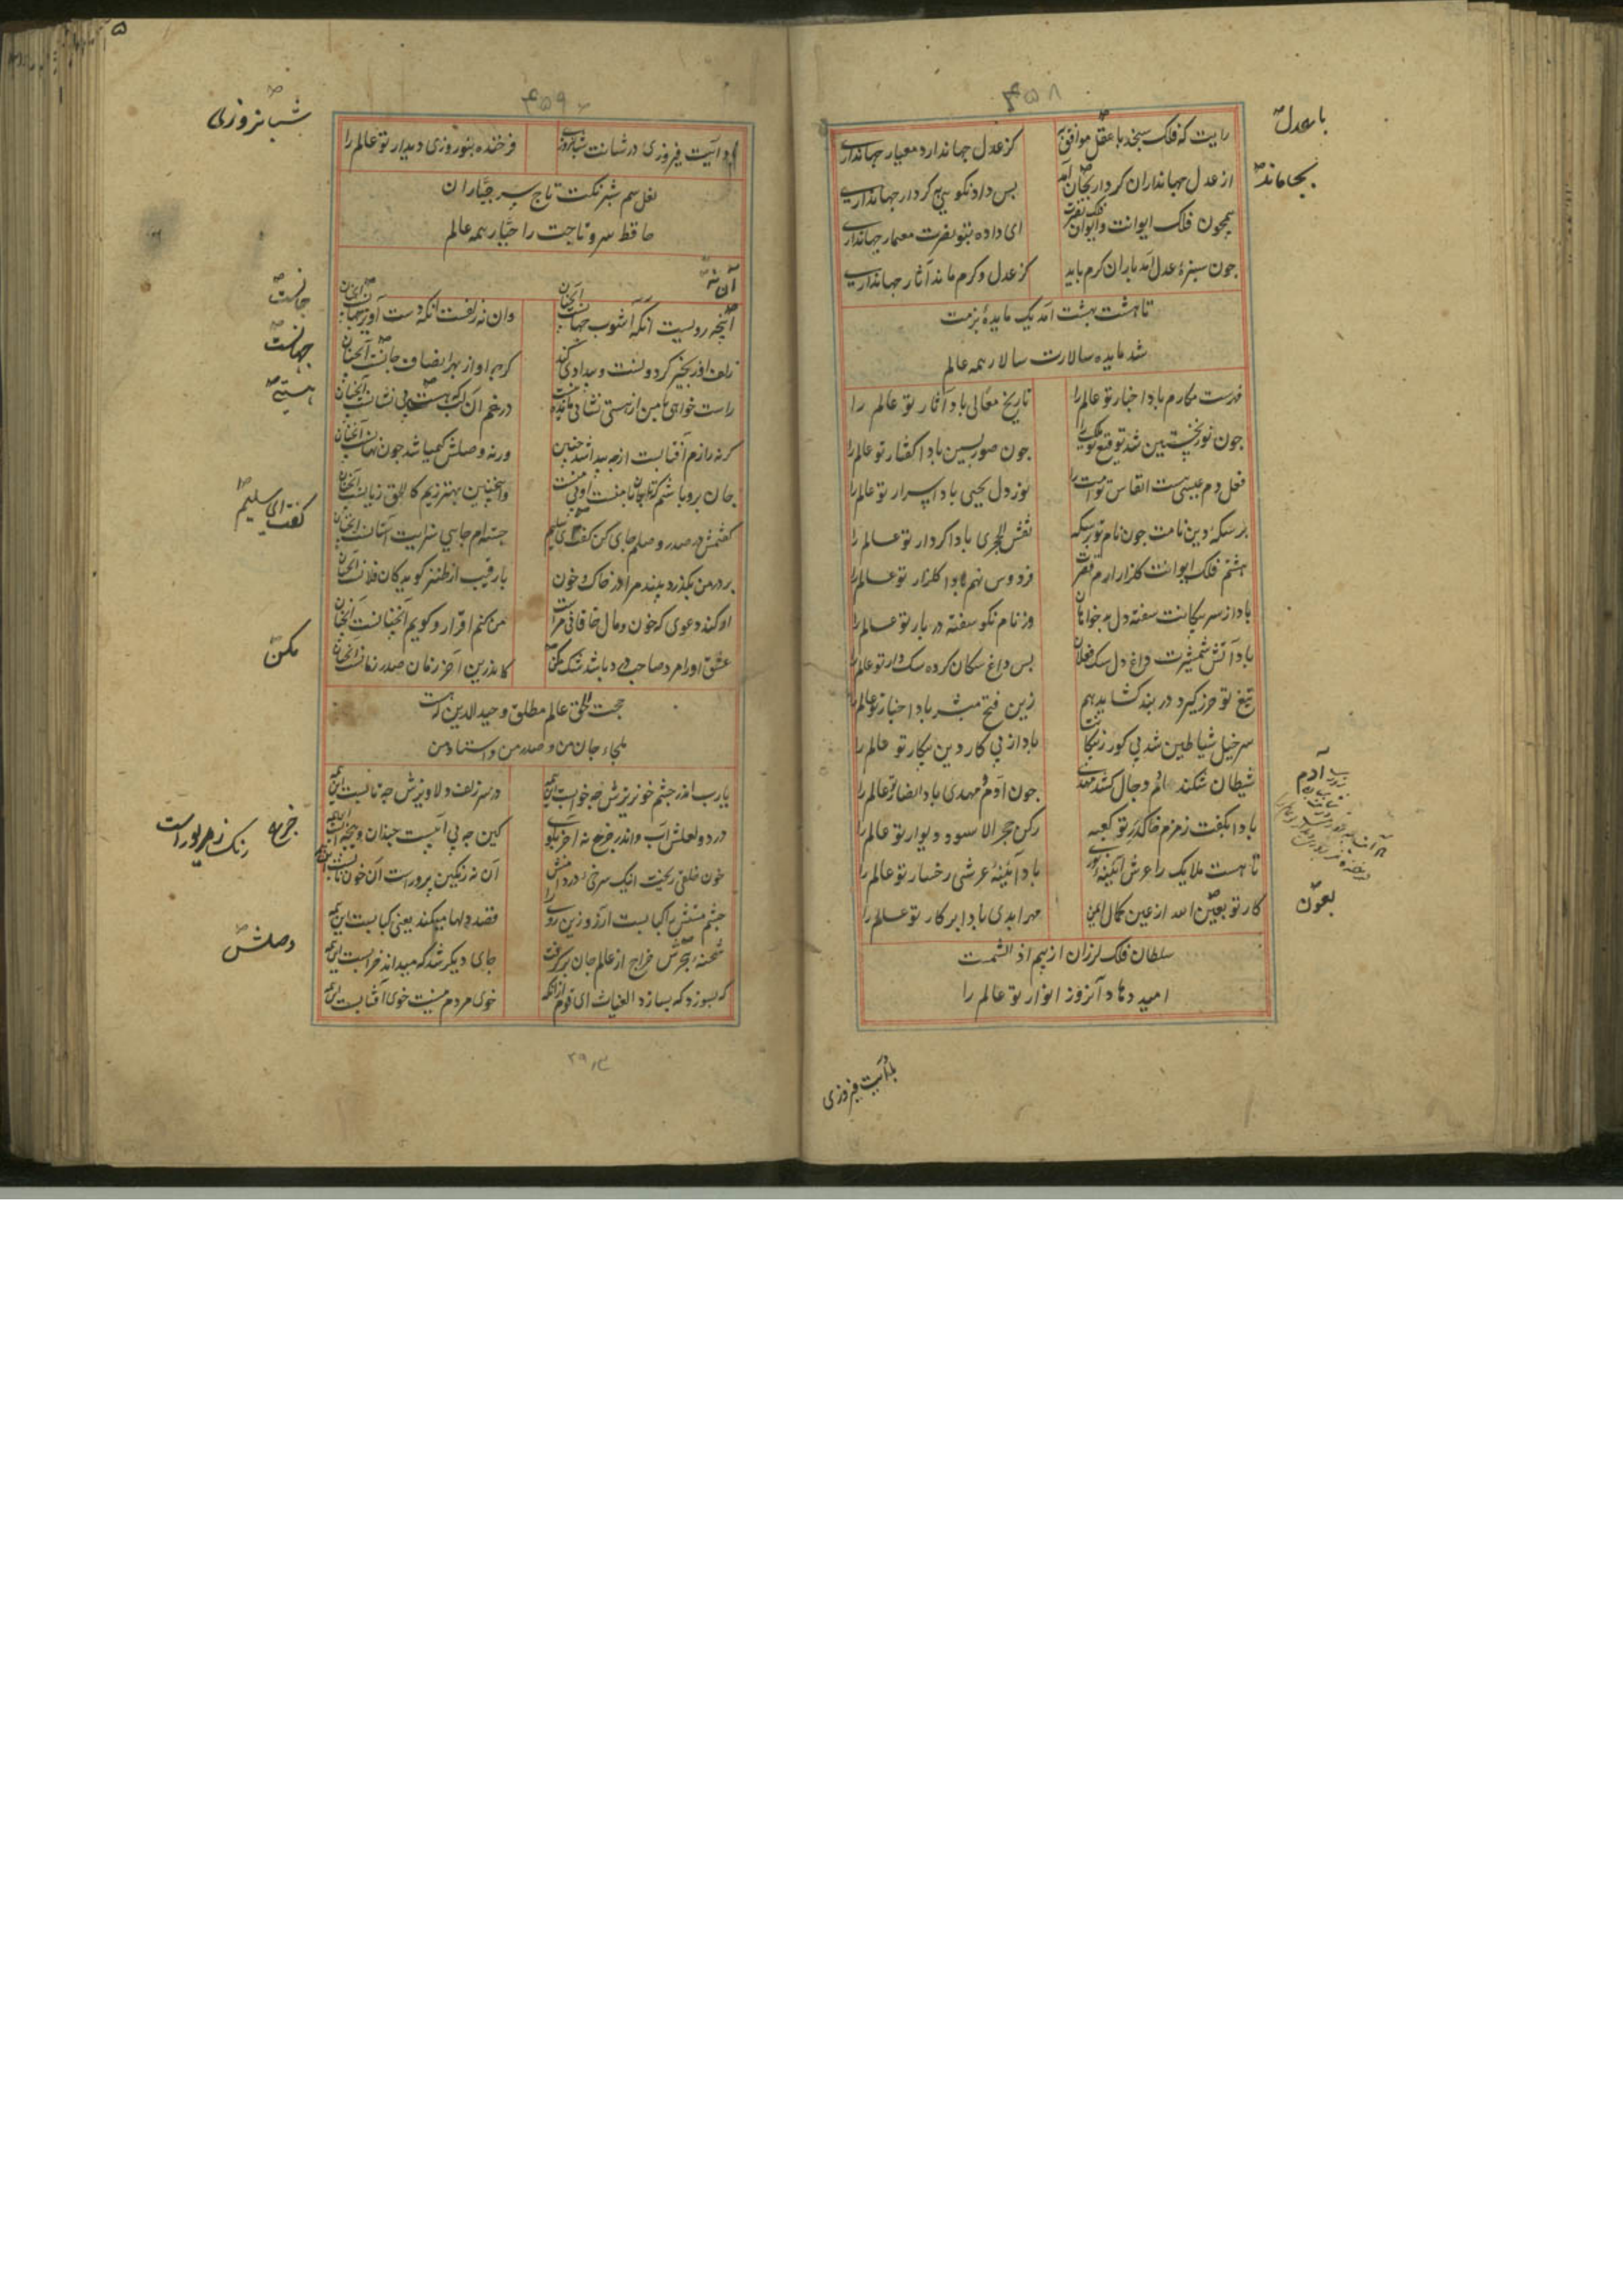 ۴۵۸
رایت که فلک سنجد با عقل موافق کز عدل جهاندارد معیار جهانداری
از عدل جهانداران کردار بجان آمد بس داد نکو بینی کردار جهانداری
همچون فلک ایوانت و ایوان فلک نصرت ای داده بتو نصرت معمار جهانداری
چون سبزهٔ عدل آمد باران کرم باید کز عدل و کرم ماند آثار جهانداری
تا هشت بهشت آمد یک مایدهٔ بزمت
شد مایده سالارت سالار همه عالم
فهرست مکارم باد اخبار تو عالم را تاریخ معالی باد آثار تو عالم را
چون نور نخستین شد توقیع تو ملک را چون صور پسین بادا گفتار تو عالم را
فعل دم عیسی است انفاس تو امت را نوز دل یحیی باد اسرار تو عالم را
بر سکهٔ دین نامت چون نام تو بر سکه نقش الحجری بادا کردار تو عالم را
هشتم فلک ایوانت گلزار ارم قصرت فردوس نهم بادا گلزار تو عالم را
باد از سر پیکانت سفته دل بدخواهان وز نام نکو سفته دربار تو عالم را
باد آتش شمشیرت داغ دل سک فعلان بس داغ سکان کرده سک دار تو عالم را
تیغ تو خزر گیرد دربند گشاید هم زین فتح مبشر باد اخبار تو عالم را
سرخیل شیاطین شد پی کور ز پیکانت باد از پی کار دین پیکار تو عالم را
شیطان شکند آدم دجال کشد مهدی چون آدم و مهدی باد انصار تو عالم را
بادا بکفت زمزم خاک در تو کعبه رکن حجر الاسود دیوار تو عالم را
تا هست ملایک را عرش آینه نور باد آینهٔ عرشی رخسار تو عالم را
کار تو بعین الله از عین کمال ایمن مهر ابدی بادا بر کار تو عالم را
سلطان فلک لرزان از بیم اذ الشمست
امید دهاد آنروز انوار تو عالم را
باد آیت فیروزی
با عدل
بجا ماند
آدم
بعون
۴۵۹
باد آیت فیروزی در شانت شبانروزی فرخنده بنوروزی دیدار تو عالم را
نعل سم شبرنگت تاج سر جباران
حافظ سر و تاجت را جبار همه عالم
آن نه
آنچه رویست آنکه آشوب جهانست آنچنان وان نه زلفست آنکه دست آویز جانست آنچنان
زلف او زنجیر گردونست و بیدادی کند گرچه او از بهر انصاف جهانست آنچنان
راست خواهی با من از هستی نشانی مانده نیست در غم آن لب که هست بی نشانست آنچنان
گرنه رازم آفتابست از چه پیدا شد چنین ورنه وصلش کیمیا شد چون نهانست آنچنان
جان برو پاشم که تا جان با منست او بی منست واینچنین بهتر زیم کالحق زیانست آنچنان
گفتمش در صدر وصلم جای کن گفت ای سلیم جسته‌ام جایی سزایت آستانست آنچنان
بر در من بگذرد بیند مرا در خاک و خون با رقیب از طنز گوید کان فلانست آنچنان
او کند دعوی که خون و مال خاقانی مراست من کنم اقرار و گویم آنچنانست آنچنان
عشق او را مرد صاحب درد باشد شک مکن کاندرین آخر زمان صدر زمانست آنچنان
حجت الحق عالم مطلق وحید الدین که هست
ملجاء جان من و صدر من و استاد من
یارب اندر چشم خونریزش چه خوابست این همه در سر زلف دلاویزش چه تابست این همه
در دو لعلش آب و اندر جزع نه آخر بگوی کین چه بی آبیست چندان و چه آبست این همه
خون خلقی ریخت اینک سرخی در دامنش آن نه رنگین پرورست آن خون نابست این همه
چشم مستش را کبابست آرزو زین روی را قصد دلها میکند یعنی کبابست این همه
شحنهٔ هجرش خراج از عالم جان بر گرفت جای دیگر شد که میداند خرابست این همه
که بسوزد که بسازد الغیاث ای قوم از آنکه خوی مردم نیست خوی آفتابست این همه
شبانروزی
جانست
جهانست
هستیئ
گفت ای سلیم
مکن
جزعه رنگ زهر پوراست
وصلش
۵